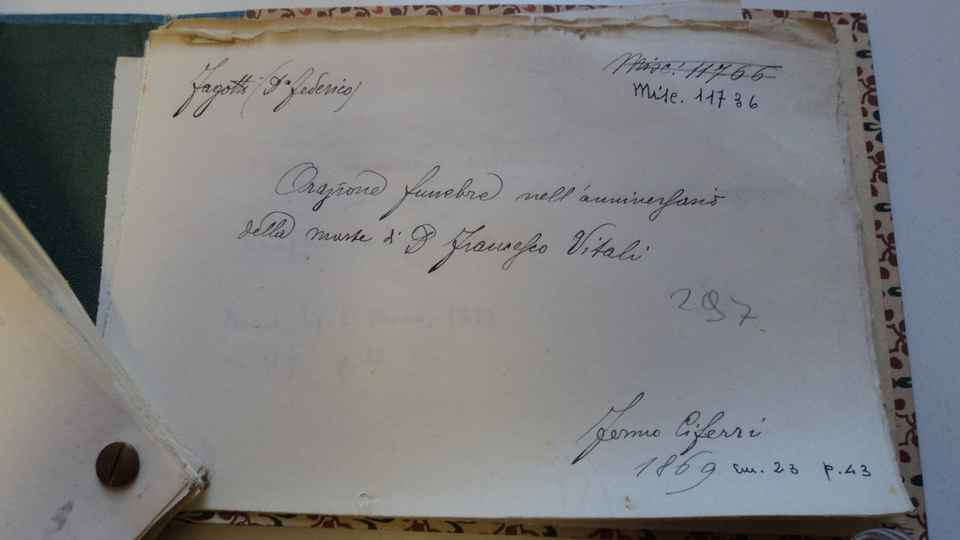 Fagotti (Dn Federico)
Misc. 11766
Misc. 11736
Orazione funebre nell'anniversario
della morte di D Francesco Vitali
297
Fermo Ciferri
1869 cm. 23 p. 43